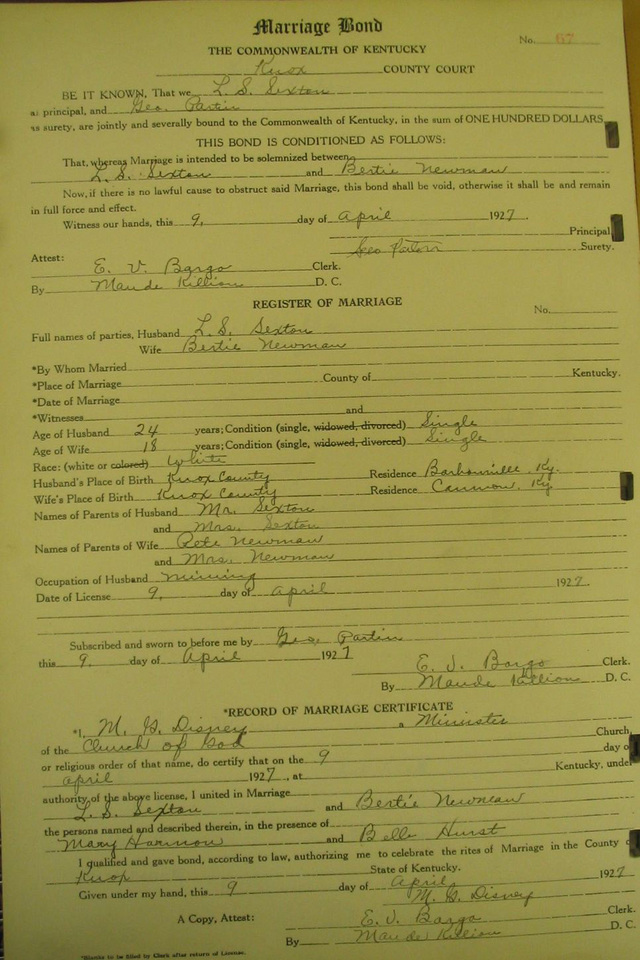 Marriage Bond
No. 67
THE COMMONWEALTH OF KENTUCKY
Knox COUNTY COURT
BE IT KNOWN, That we L. S. Sexton
as principal, and Geo. Partin
as surety, are jointly and severally bound to the Commonwealth of Kentucky, in the sum of ONE HUNDRED DOLLARS
THIS BOND IS CONDITIONED AS FOLLOWS:
That, whereas Marriage is intended to be solemnized between
L. S. Sexton and Bertie Newman
Now, if there is no lawful cause to obstruct said Marriage, this bond shall be void, otherwise it shall be and remain
in full force and effect.
Witness our hands, this 9, day of April 1927
Principal
Geo Surety.
Attest:
E. V. Bargo Clerk.
By Maude Killion D. C.
REGISTER OF MARRIAGE
No.
Full names of parties, Husband L. S. Sexton
Wife Bertie Newman
*By Whom Married
*Place of Marriage County of Kentucky.
*Date of Marriage
*Witnesses and
Age of Husband 24 years; Condition (single, widowed, divorced) Single
Age of Wife 18 years; Condition (single, widowed, divorced) Single
Race: (white or colored) White
Husband's Place of Birth Knox County Residence Barbourville, Ky.
Wife's Place of Birth Knox County Residence Cannon, Ky
Names of Parents of Husband Mr. Sexton
and Mrs. Sexton
Names of Parents of Wife Pete Newman
and Mrs. Newman
Occupation of Husband mining
Date of License 9, day of April 1927.
Subscribed and sworn to before me by Geo. Partin
this 9 day of April 1927
E. V. Bargo Clerk.
By Maude Killion D. C.
*RECORD OF MARRIAGE CERTIFICATE
*I, M. G. Disney a Minister
of the Church of God Church,
or religious order of that name, do certify that on the 9 day o
April 1927, at Kentucky, under
authority of the above license, I united in Marriage
L. S. Sexton and Bertie Newman
the persons named and described therein, in the presence of
Mary and Belle Hurst
I qualified and gave bond, according to law, authorizing me to celebrate the rites of Marriage in the County
Knox State of Kentucky.
Given under my hand, this 9 day of April 1927
M. G. Disney
A Copy, Attest: E. V. Bargo Clerk.
By Maude Killion D. C.
*Blanks to be filled by Clerk after return of License.